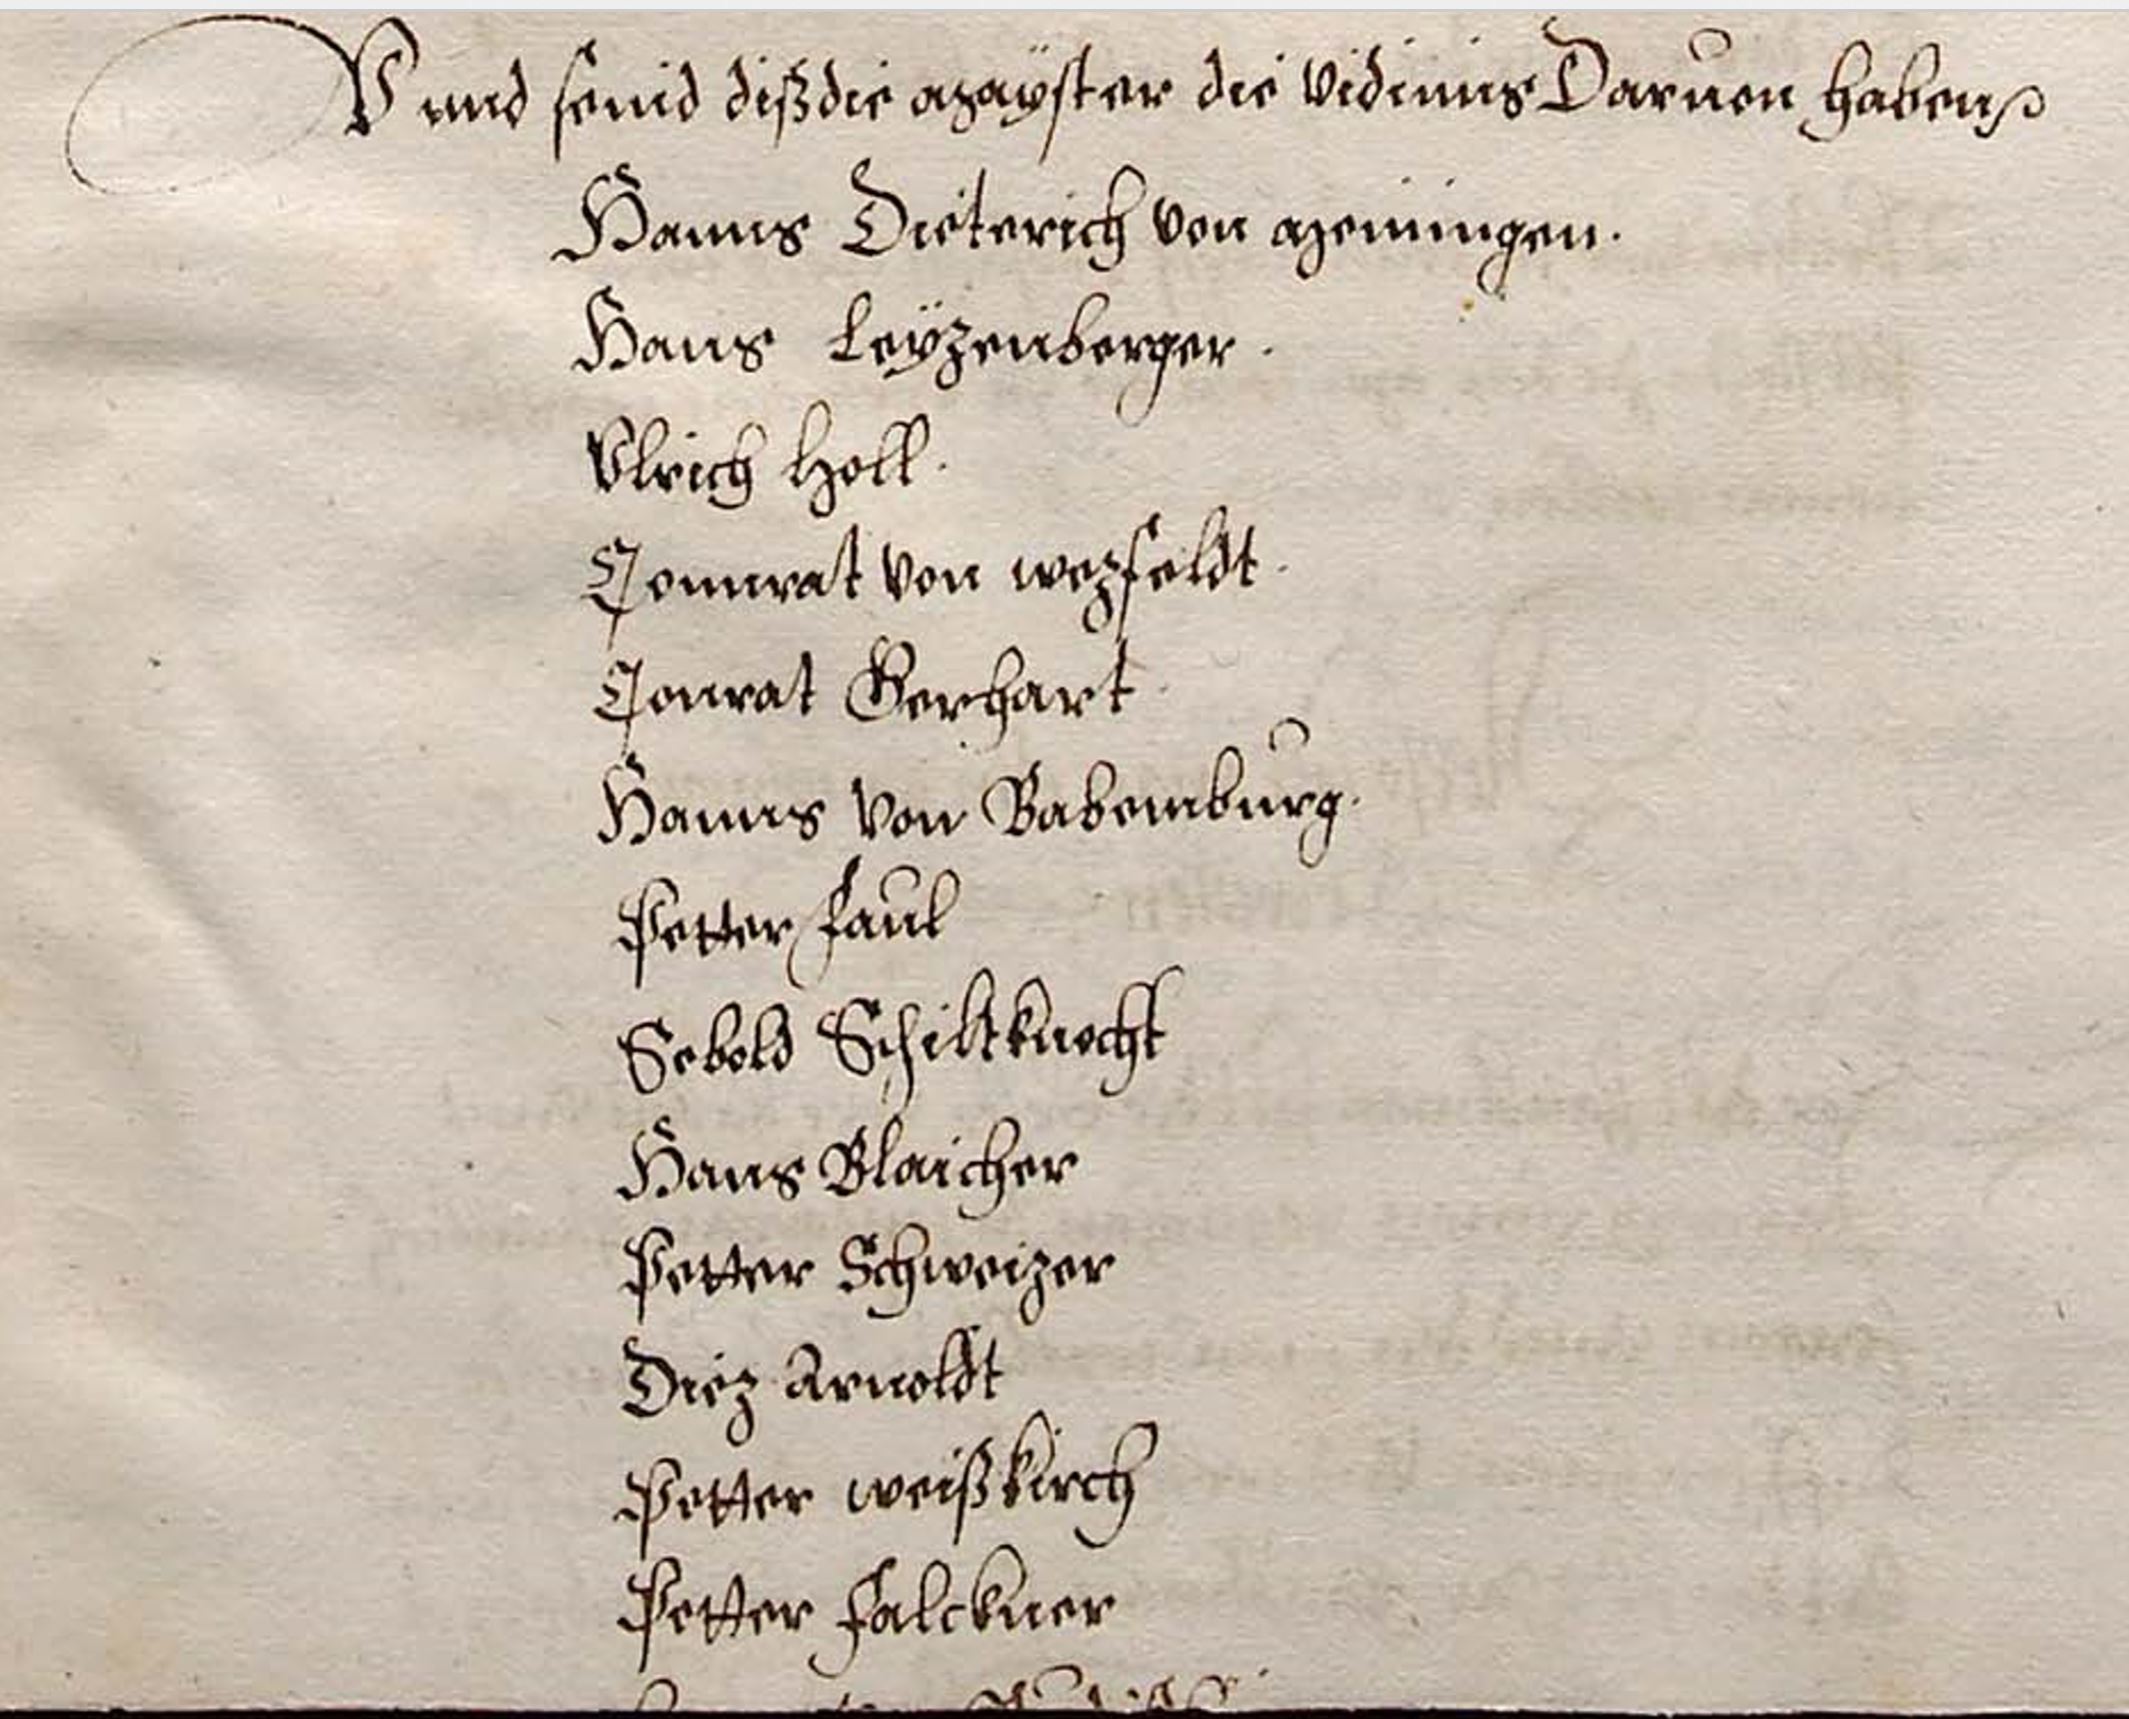 Vnnd seind diß die Mayster die vidimus Daruon haben
Hanns Dieterich von Meiningen.
Hans Leyzenberger.
Vlrich Holl.
Connrat von wezfeldt.
Conrat Gerhart
Hanns von Babemburg.
Petter Faul
Sebold Schiltknecht
Hans Blaicher
Petter Schweizer
Diez Arnoldt
Petter weißkirch
Petter Falckner